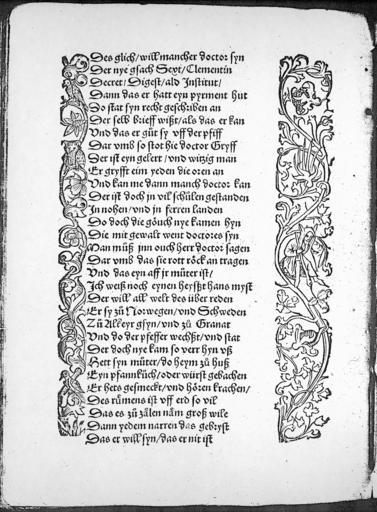 Des glich/will mancher doctor syn
Der nye gsach Sext/Clementin
Decret/Digest/ald Institut/
Dann das er hatt eyn pyrment hut
Do stat syn recht geschriben an
Der selb brieff wißt/als das er kan
Vnd das er gůt sy vff der pfiff
Dar vmb so stot hie doctor Gryff
Der ist eyn gelert/vnd witzig man
Er gryfft eim yeden die oren an
Vnd kan me dann manch doctor kan
Der ist doch jn vil schůlen gestanden
In nohen/vnd jn ferren landen
Do doch die göuch nye kamen hyn
Die mit gewalt went doctores syn
Man můß jnn ouch herr doctor sagen
Dar vmb das sie rott röck an tragen
Vnd das eyn aff jr můter ist/
Jch weiß noch eynen heyßt hans myst
Der will all welt des über reden
Er sy zů Norwegen/vnd Schweden
Zů Alkeyr gsyn/vnd zů Granat
Vnd do der pfeffer wechßt/vnd stat
Der doch nye kam so verr hyn vß
Hett syn můter/do heym zů huß
Eyn pfannkůch/oder würst gebachen
Er hets gesmeckt/vnd hören krachen/
Des růmens ist vff erd so vil
Das es zů zälen näm groß wile
Dann yedem narren das gebryst
Das er will syn/das er nit ist